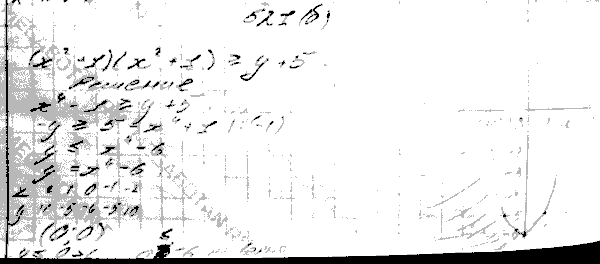 521(б)
(x²-1)(x²+1) ≥ y+5
Решение
x⁴-1 ≥ y+5
y ≥ 5-x⁴+1 |·(-1)
y ≤ x⁴-6
y = x⁴-6
x 2 1 0 -1 -2
y 10 -5 -6 -5 10
(0;0)